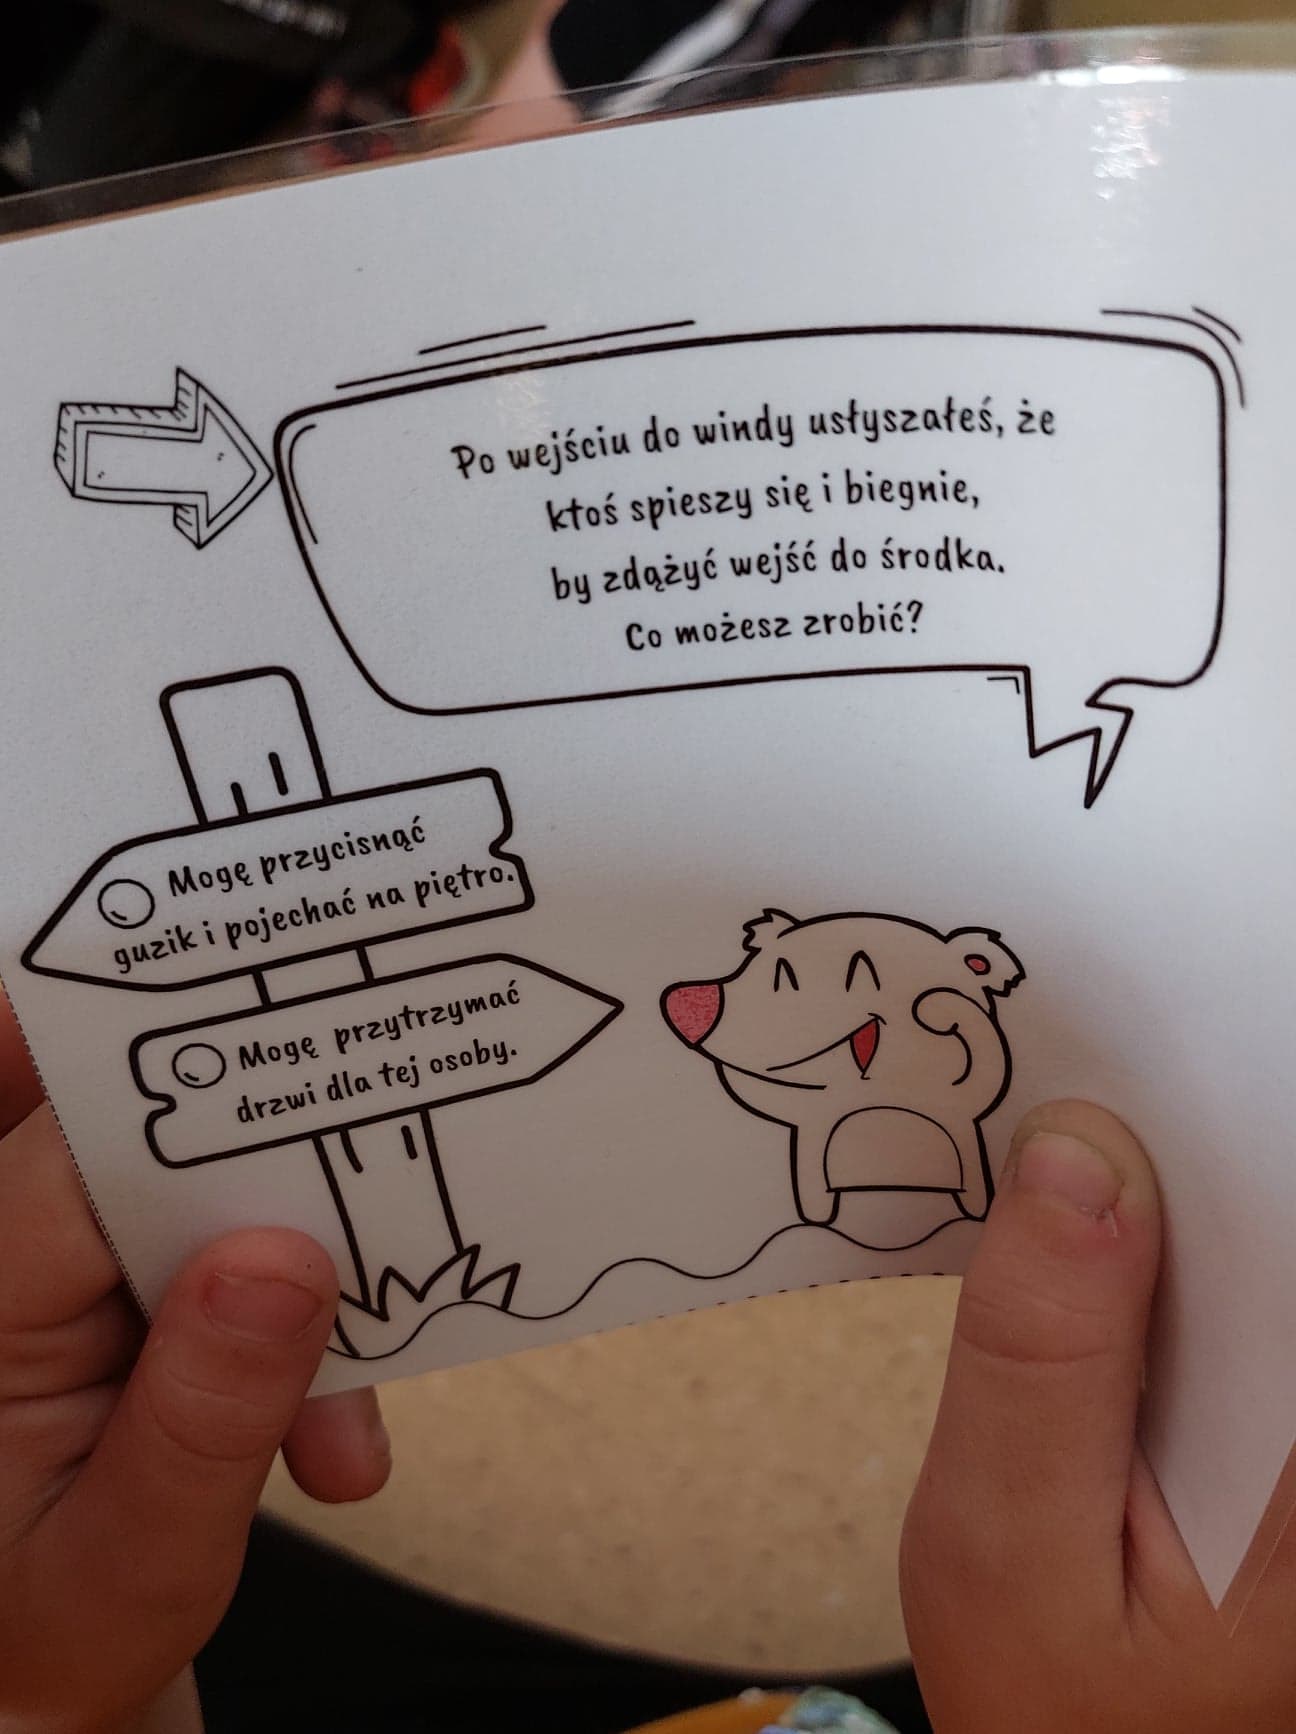 Po wejściu do windy usłyszałeś, że
ktoś spieszy się i biegnie,
by zdążyć wejść do środka.
Co możesz zrobić?
Mogę przycisnąć
guzik i pojechać na piętro.
Mogę przytrzymać
drzwi dla tej osoby.